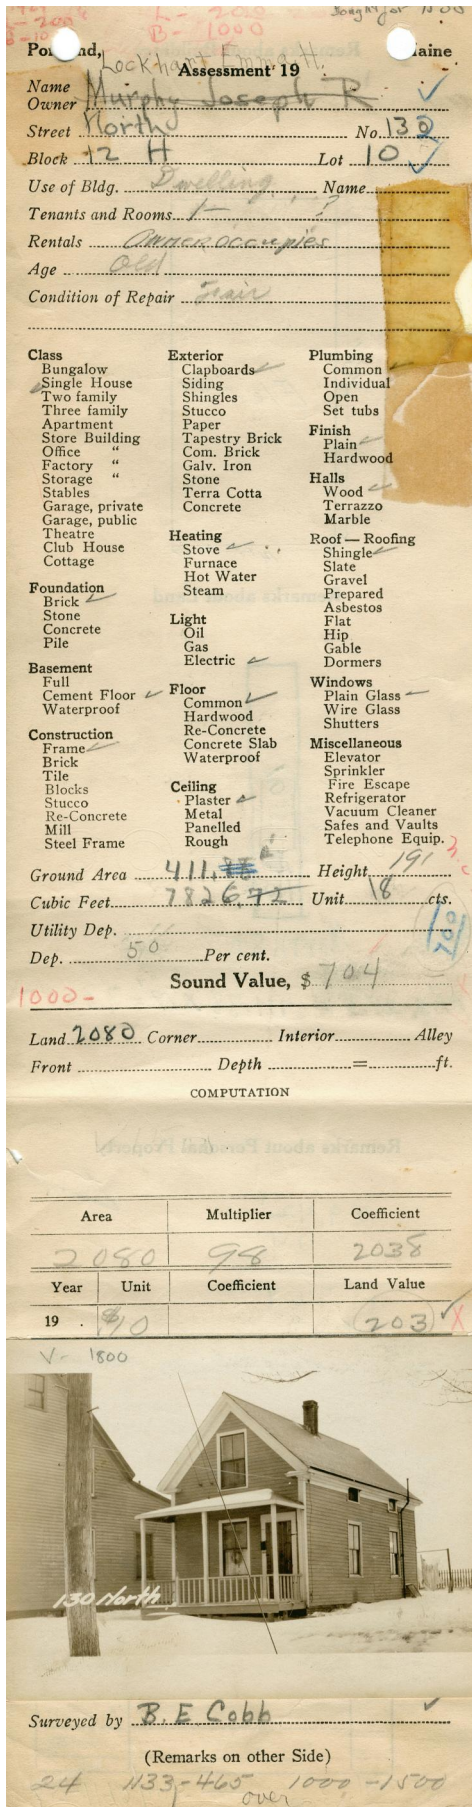 L- 200
B- 1000
Bought for 1500
Portland, Maine
Lockhart Emma H.
Assessment 19
Name
Owner Murphy Joseph R
Street North No. 130
Block 12 H Lot 10
Use of Bldg. Dwelling Name
Tenants and Rooms 1 - ?
Rentals Owner occupies
Age Old
Condition of Repair Fair
Class
Bungalow
Single House
Two family
Three family
Apartment
Store Building
Office "
Factory "
Storage "
Stables
Garage, private
Garage, public
Theatre
Club House
Cottage
Foundation
Brick
Stone
Concrete
Pile
Basement
Full
Cement Floor
Waterproof
Construction
Frame
Brick
Tile
Blocks
Stucco
Re-Concrete
Mill
Steel Frame
Exterior
Clapboards
Siding
Shingles
Stucco
Paper
Tapestry Brick
Com. Brick
Galv. Iron
Stone
Terra Cotta
Concrete
Heating
Stove
Furnace
Hot Water
Steam
Light
Oil
Gas
Electric
Floor
Common
Hardwood
Re-Concrete
Concrete Slab
Waterproof
Ceiling
Plaster
Metal
Panelled
Rough
Plumbing
Common
Individual
Open
Set tubs
Finish
Plain
Hardwood
Halls
Wood
Terrazzo
Marble
Roof — Roofing
Shingle
Slate
Gravel
Prepared
Asbestos
Flat
Hip
Gable
Dormers
Windows
Plain Glass
Wire Glass
Shutters
Miscellaneous
Elevator
Sprinkler
Fire Escape
Refrigerator
Vacuum Cleaner
Safes and Vaults
Telephone Equip.
Ground Area 411. Height 191
Cubic Feet 7826.72 Unit 18 cts.
Utility Dep.
700
Dep. 50 Per cent.
Sound Value, $ 704
1000-
Land 2080 Corner Interior Alley
Front Depth = ft.
COMPUTATION
Area Multiplier Coefficient
2080 98 2038
Year Unit Coefficient Land Value
19 . $10 203
V- 1800
130 North
Surveyed by B. E Cobb
(Remarks on other Side)
24 1133-465 1000-1500
over